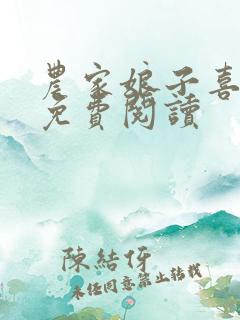 農家娘子喜
免費閱讀
陳結伢
未經同意禁止轉載